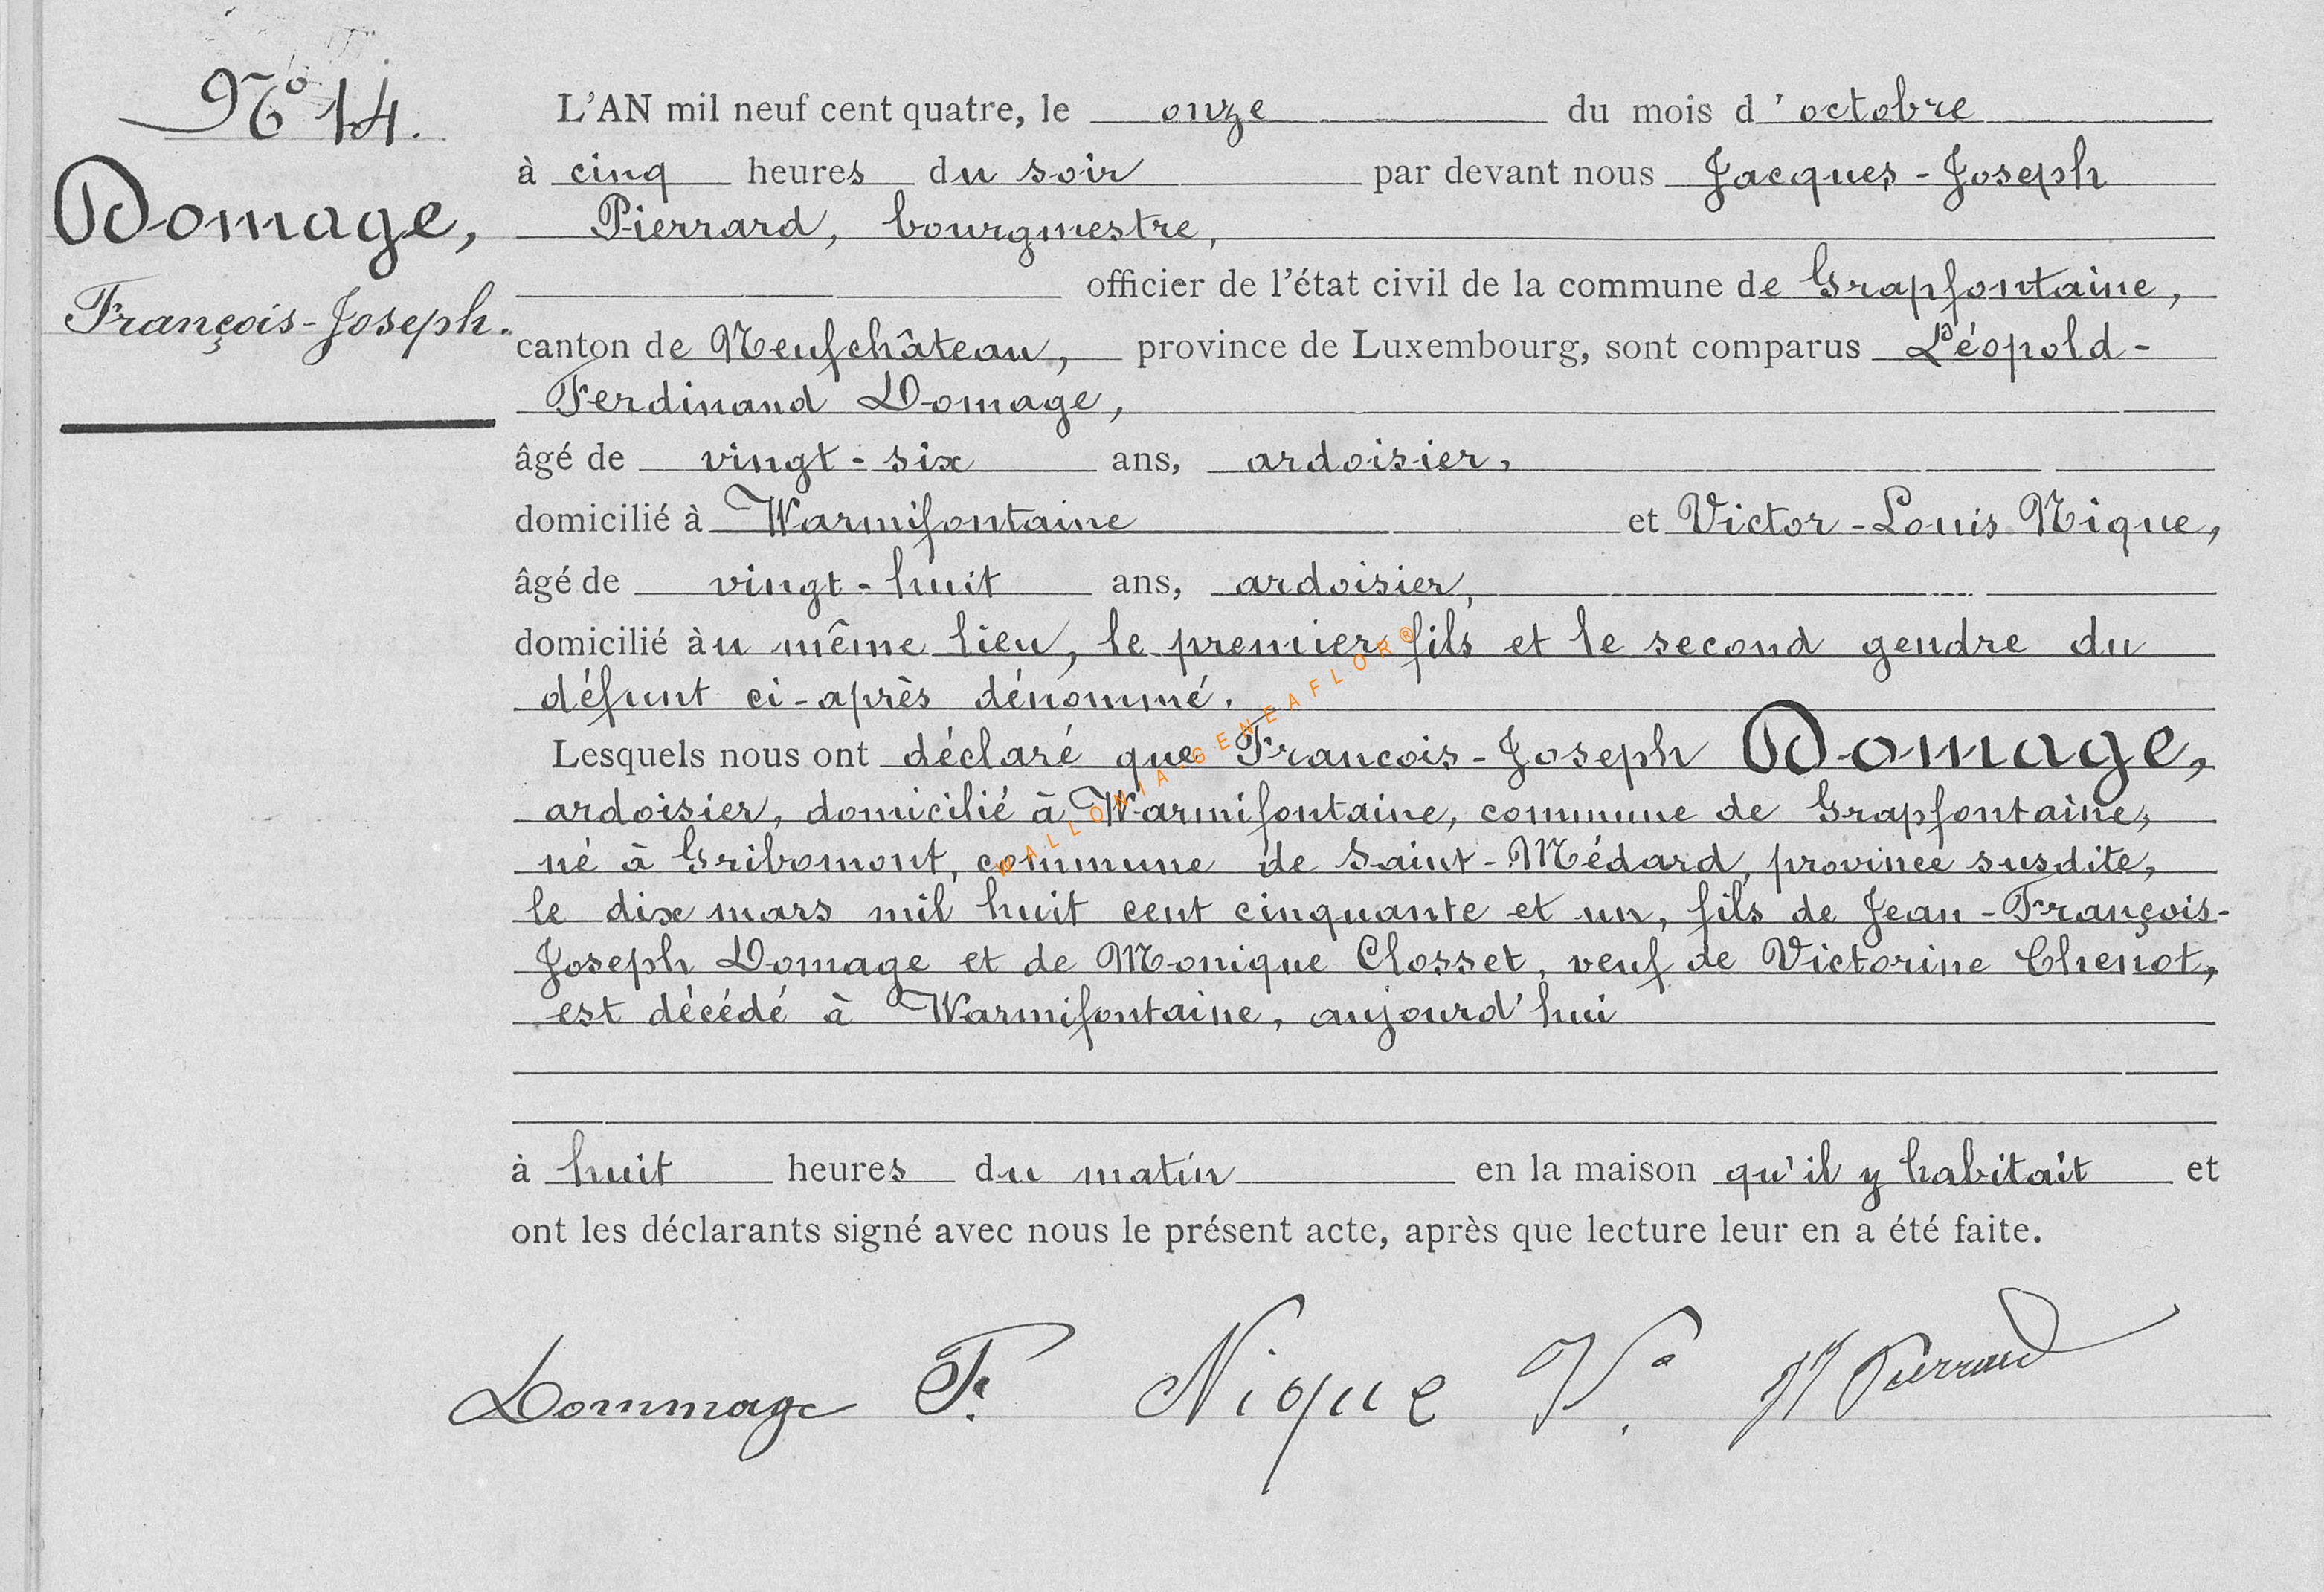 N° 14.
Domage,
François-Joseph.
L'AN mil neuf cent quatre, le onze du mois d'octobre
à cinq heures du soir par devant nous Jacques-Joseph
Pierrard, bourgmestre,
officier de l'état civil de la commune de Grapfontaine,
canton de Neufchâteau, province de Luxembourg, sont comparus Léopold-
Ferdinand Domage,
âgé de vingt-six ans, ardoisier,
domicilié à Warmifontaine et Victor-Louis Nique,
âgé de vingt-huit ans, ardoisier,
domicilié àu même lieu, le premier fils et le second gendre du
défunt ci-après dénommé.
Lesquels nous ont déclaré que Francois-Joseph Domage,
ardoisier, domicilié à Warmifontaine, commune de Grapfontaine,
né à Gribomont, commune de Saint-Médard, province susdite,
le dix mars mil huit cent cinquante et un, fils de Jean-François-
Joseph Domage et de Monique Closset, veuf de Victorine Chenot,
est décédé à Warmifontaine, aujourd'hui
à huit heures du matin en la maison qu'il y habitait et
ont les déclarants signé avec nous le présent acte, après que lecture leur en a été faite.
Dommage F. Nique V. JJ Pierrard
WALLONIA-GENEAFLOR®